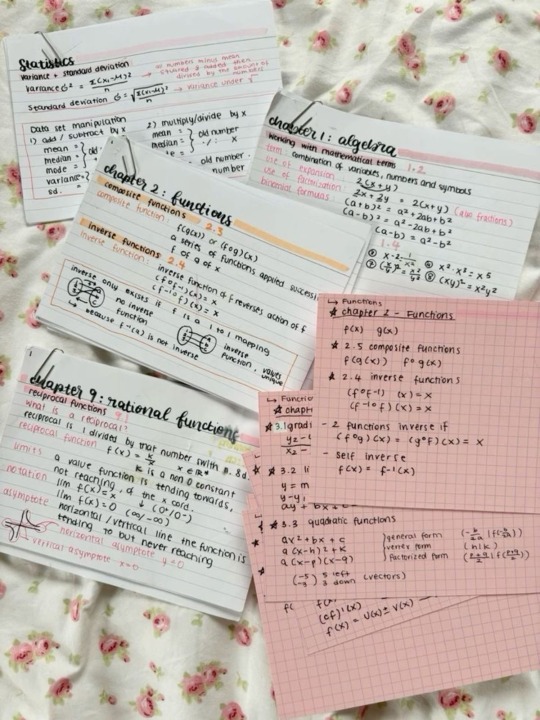 Statistics
variance + standard deviation
variance σ² = Σ(xi-M)²/n → numbers minus mean squared & added then divided by the amount of numbers
standard deviation σ = √Σ(xi-M)²/n → variance under √
Data set manipulation
1) add / subtract by x
mean =
median =
mode =
varians =
sd. =
old
2) multiply/divide by x
mean =
median =
old number
·/: x
old number
number
chapter 1: algebra
working with mathematical terms 1.2
term combination of variables, numbers and symbols
use of expansion 2(x+y)
use of factorisation 2x+2y = 2(x+y) (also fractions)
binomial formulas (a+b)² = a²+2ab+b²
(a-b)² = a²-2ab+b²
(a-b) = a²-b²
1.4
x-2 = 1/x²
x³·x² = x5
(xy)² = x²y²
chapter 2: functions
composite functions 2.3
composite function: f(g(x)) or (fog)(x)
a series of functions applied successi
f of g of x
inverse functions 2.4
inverse function: inverse function of f reverses action of f
(fof-1)(x) = x
(f-1of)(x) = x
inverse only exists if f is a 1 to 1 mapping
no inverse function
↳ because f-1(a) is not inverse
inverse function: values unique
chapter 9: rational functions
reciprocal functions 9.1
what is a reciprocal?
reciprocal is 1 divided by that number (with
reciprocal function f(x) = k/x x ∈ R*
k is a non 0 constant
limits a value function is tending towards,
not reaching, as the x
notation lim f(x) = x ↓ (0+/0-)
lim f(x) = 0 (∞/-∞)
asymptote horizontal / vertical line the function is
tending to but never reaching
horizontal asymptote y=0
vertical asymptote x=0
↳ Functions
★ chapter 2 - Functions
f(x) g(x)
★ 2.5 composite functions
f(g(x)) f∘g(x)
★ 2.4 inverse functions
(f∘f-1)(x) = x
(f-1∘f)(x) = x
- 2 functions inverse if
(f∘g)(x) = (g∘f)(x) = x
- self inverse
f(x) = f-1(x)
↳ Functio
★ chapt
★ 3.1 gradi
y2-
x2-
★ 3.2 li
y = m
y-y1
ax + by +
★ 3.3 quadratic functions
ax²+bx+c } general form (-b/2a | f(-b/2a))
a(x-h)²+k } vertex form (h|k)
a(x-p)(x-q) } factorized form (p+q/2 | f(p+q/2))
(-5/-3) 5 left 3 down (vectors)
(cf)'(x)
f'(x) = u'(x) ± v'(x)